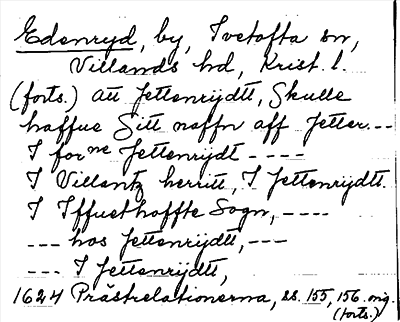 Edenryd, by, Ivetofta sn,
Villands hd, Krist. l.
(forts.) att Jettenrijdtt, Skulle
haffue Sitt naffn aff Jetter. --
I forne Jettenrijdt ----
I Villantz herritt, I Jettenrijdtt.
I Iffuethoffte Sogn, ----
--- hos Jettenrijdtt, ---
--- I Jettenrijdtt,
1624 Prästrelationerna, ss. 155, 156. orig.
(forts.)